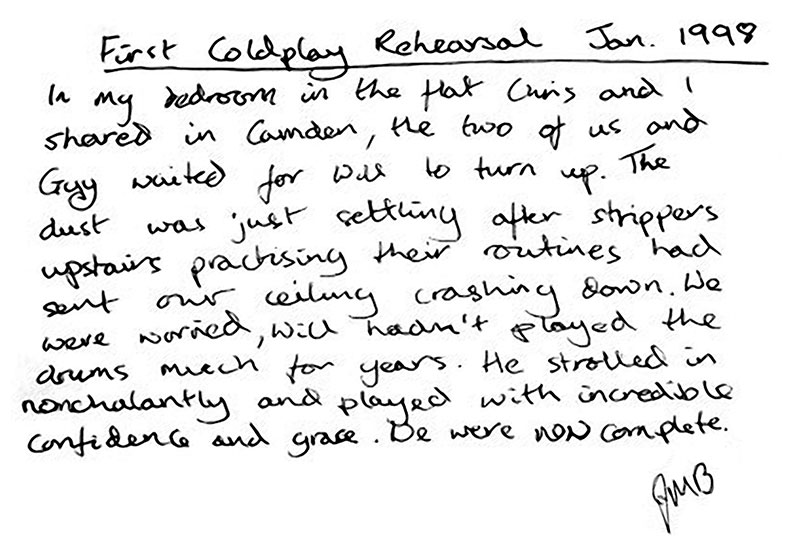 First Coldplay Rehearsal Jan. 1998
In my bedroom in the flat Chris and I
shared in Camden, the two of us and
Guy waited for Will to turn up. The
dust was just settling after strippers
upstairs practising their routines had
sent our ceiling crashing down. We
were worried, Will hadn't played the
drums much for years. He strolled in
nonchalantly and played with incredible
confidence and grace. We were now complete.
JMB